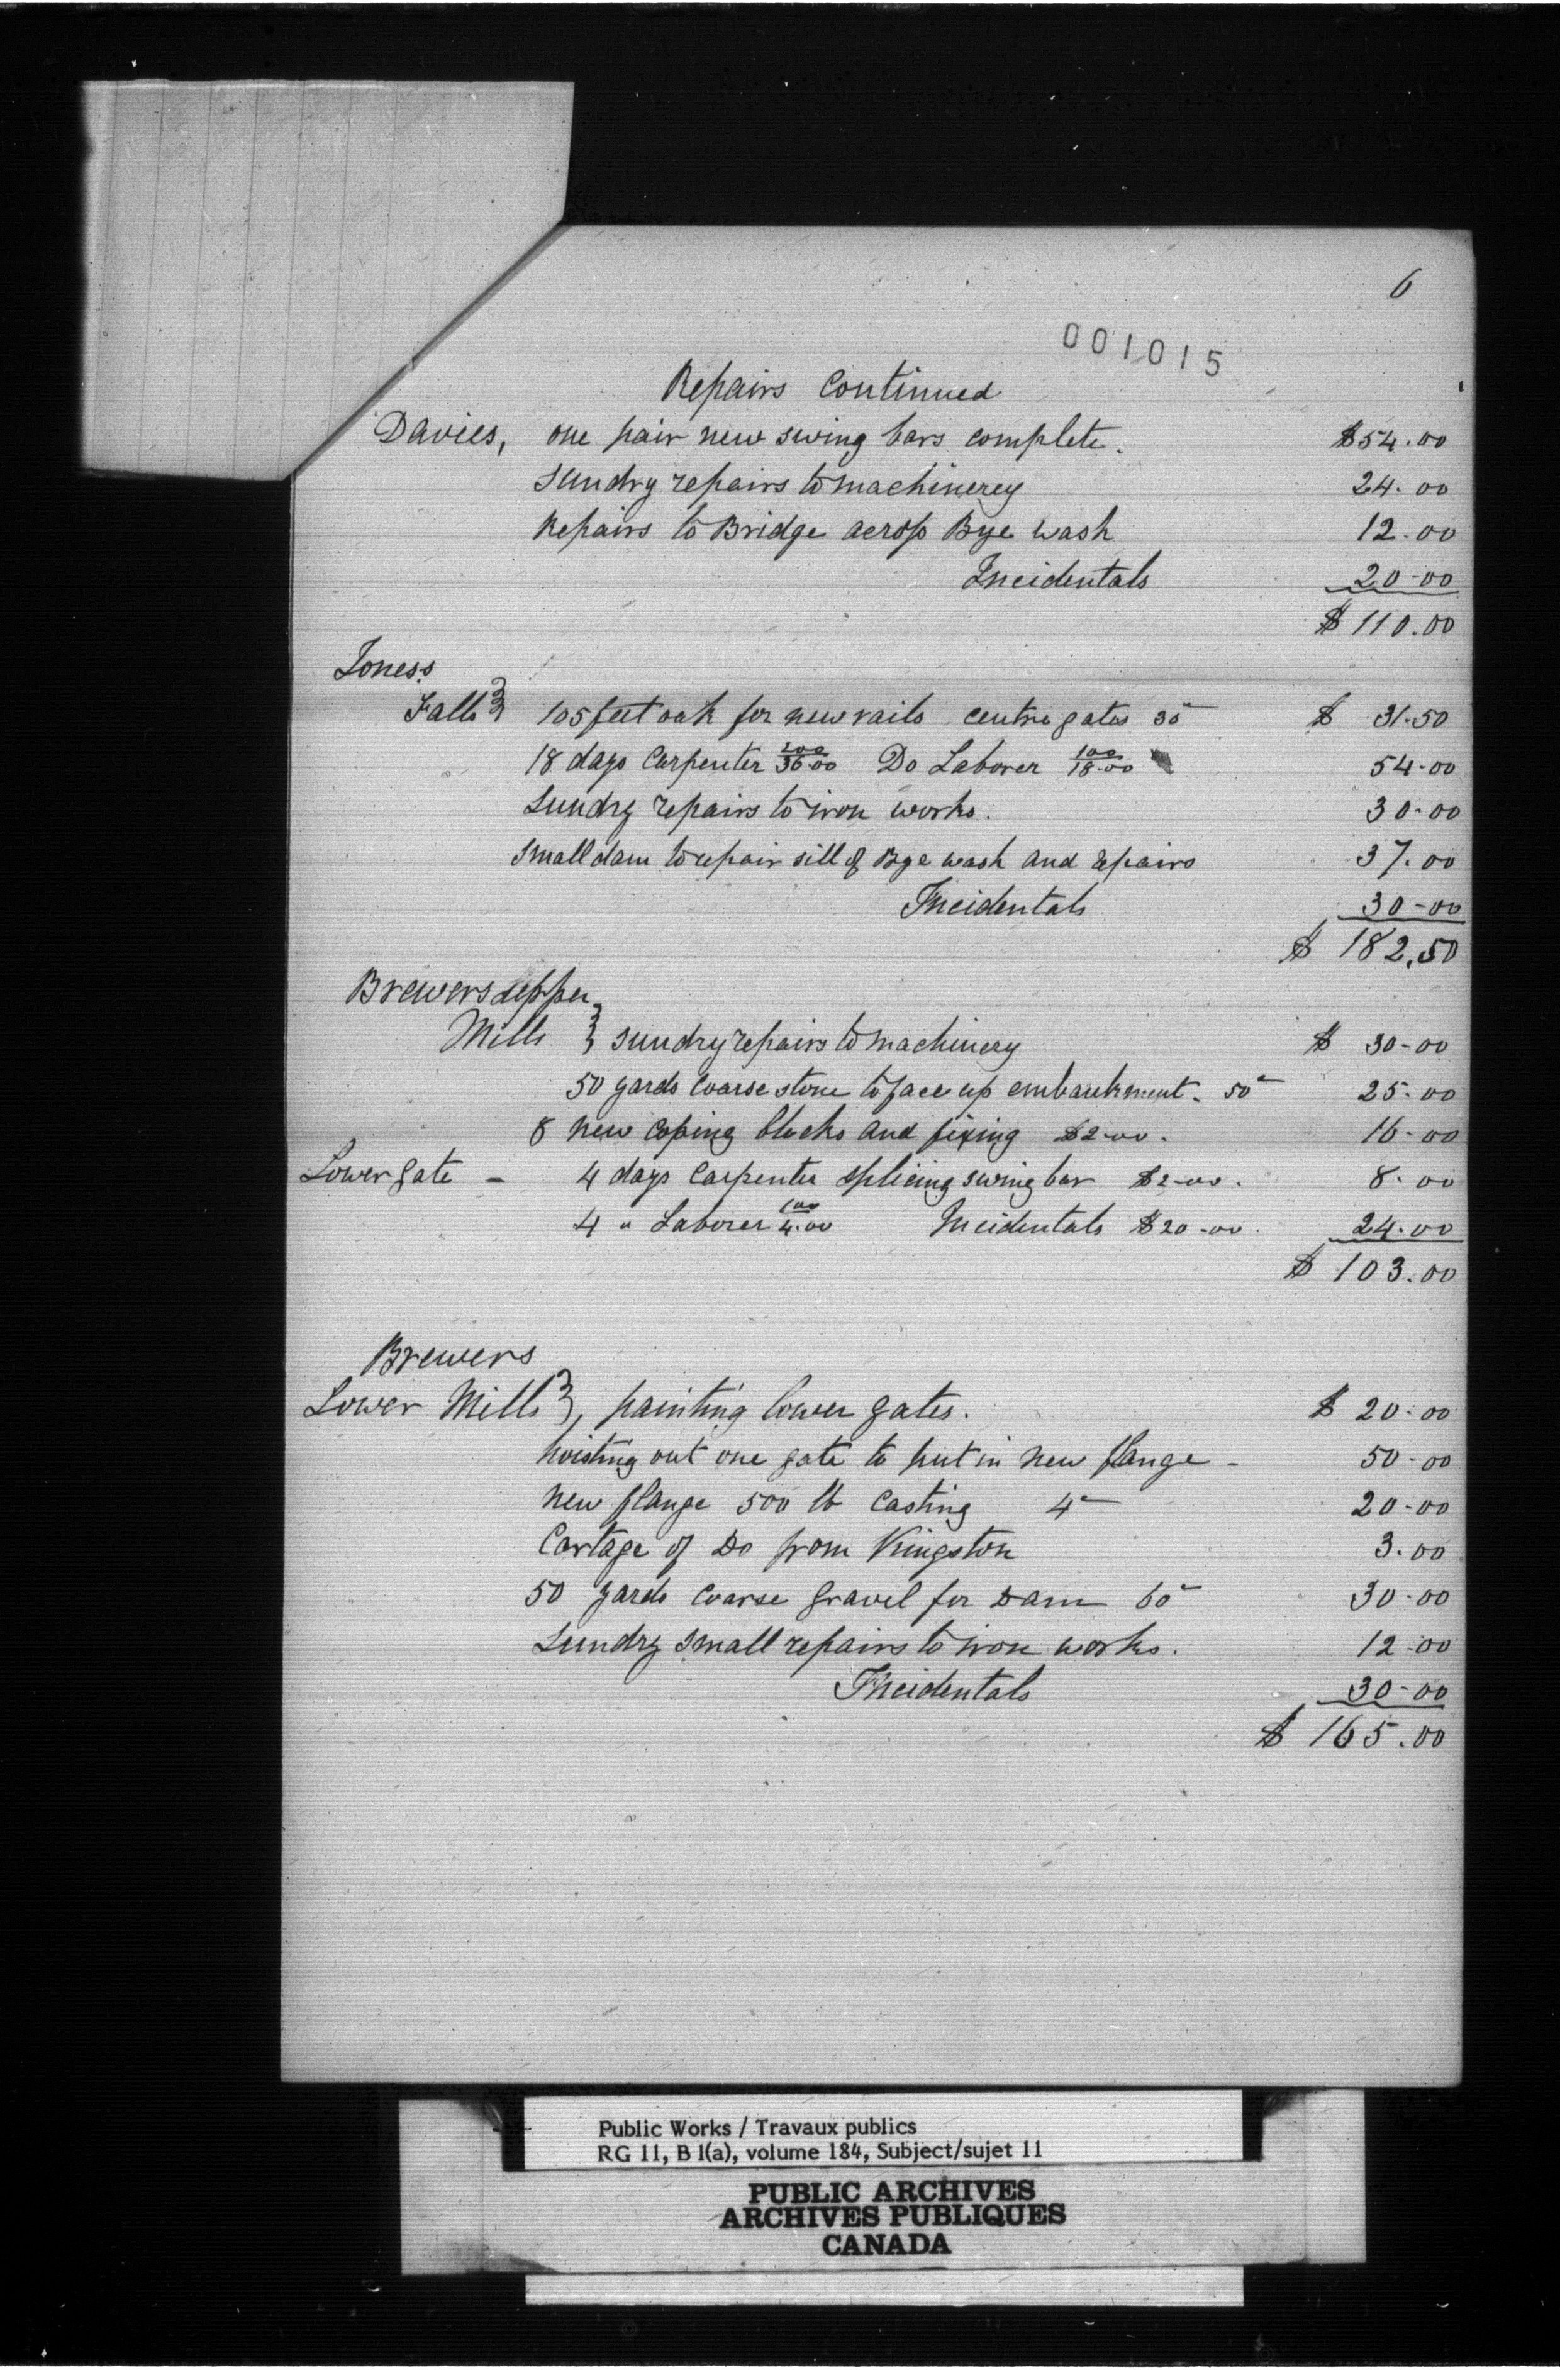 6
001015
Repairs Continued
Davies, one pair new swing bars complete. $54.00
Sundry repairs to machinerey 24.00
Repairs to Bridge across Bye wash 12.00
Incidentals 20-00
$110.00
Joness
Falls } 105 feet oak for new rails centre gates 30c $ 31.50
18 days Carpenter 200/36.00 Do Laborer 100/18.00 54-00
Sundry repairs to iron works. 30-00
Small dam to repair sill of Bye wash and repairs 37.00
Incidentals 30-00
$ 182.50
Brewers upper
Mills } sundry repairs to machinery $ 30-00
50 yards coarse stone to face up embankment. 50c 25-00
8 new coping blocks and fixing $2-00. 16-00
Lower gate - 4 days Carpenter splicing swing bar $2-00. 8.00
4 " Laborer 100/4.00 Incidentals $20-00 24.00
$ 103.00
Brewers
Lower Mills }, painting lower gates. $ 20-00
hoisting out one gate to put in new flange - 50-00
new flange 500 lb Casting 4c 20-00
Cartage of Do from Kingston 3.00
50 yards coarse gravel for Dam 60c 30-00
Sundry small repairs to iron works. 12-00
Incidentals 30-00
$ 165.00
Public Works / Travaux publics
RG 11, B 1(a), volume 184, Subject/sujet 11
PUBLIC ARCHIVES
ARCHIVES PUBLIQUES
CANADA